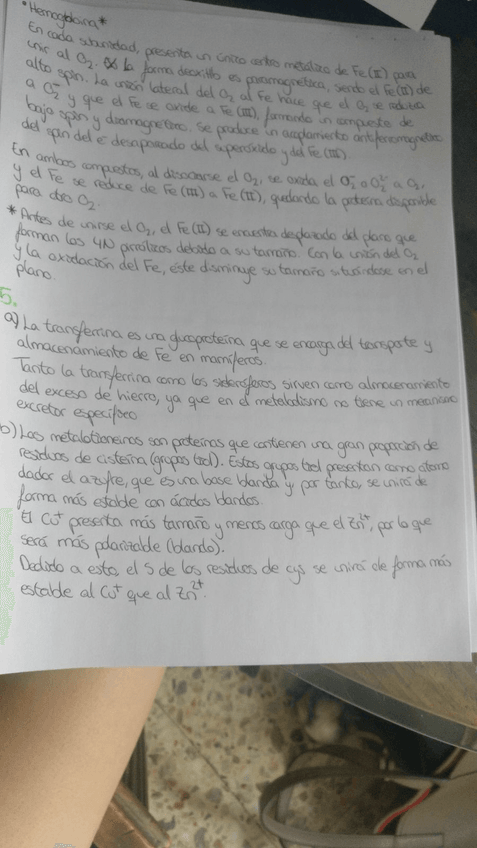 *Hemoglobina*
En cada subunidad, presenta un único centro metálico de Fe(II) para
unir al O2. La forma desoxi es paramagnética, siendo el Fe(II) de
alto spin. La unión lateral del O2 al Fe hace que el O2 se reduzca
a O2- y que el Fe se oxide a Fe(III), formando un compuesto de
bajo spin y diamagnético. Se produce un acoplamiento antiferromagnético
del spin del e- desapareado del superóxido y del Fe(III).
En ambos compuestos, al desociarse el O2, se oxida el O2- o O2 2- a O2,
y el Fe se reduce de Fe(III) a Fe(II), quedando la proteína disponible
para otro O2.
* Antes de unirse el O2, el Fe(II) se encuentra desplazado del plano que
forman los 4N pirrólicos debido a su tamaño. Con la unión del O2
y la oxidación del Fe, éste disminuye su tamaño situándose en el
plano.
5.
a) La transferrina es una glucoproteína que se encarga del transporte y
almacenamiento de Fe en mamíferos.
Tanto la transferrina como los sideróforos sirven como almacenamiento
del exceso de hierro, ya que en el metabolismo no tiene un mecanismo
excretor específico.
b) Las metalotioneínas son proteínas que contienen una gran proporción de
residuos de cisteína (grupos tiol). Estos grupos tiol presentan como átomo
dador el azufre, que es una base blanda y por tanto, se unirá de
forma más estable con ácidos blandos.
El Cu+ presenta más tamaño y menos carga que el Zn2+, por lo que
será más polarizable (blando).
Debido a esto, el S de los residuos de cys se unirá de forma más
estable al Cu+ que al Zn2+.